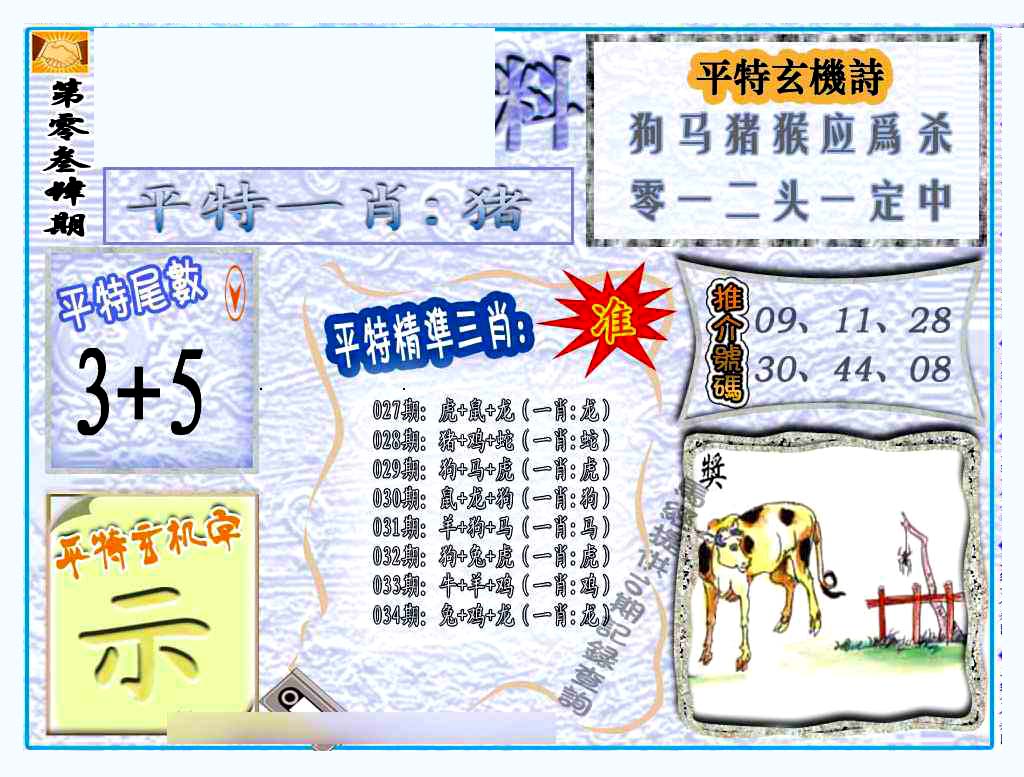 第零叁肆期
料
平特一肖:猪
平特玄機詩
狗马猪猴应爲杀
零一二头一定中
平特尾數
3+5
平特精準三肖:
准
027期: 虎+鼠+龙(一肖:龙)
028期: 猪+鸡+蛇(一肖:蛇)
029期: 狗+马+虎(一肖:虎)
030期: 鼠+龙+狗(一肖:狗)
031期: 羊+狗+马(一肖:马)
032期: 狗+兔+虎(一肖:虎)
033期: 牛+羊+鸡(一肖:鸡)
034期: 兔+鸡+龙(一肖:龙)
推介號碼
09、11、28
30、44、08
平特玄机字
示
獎
期記録查詢